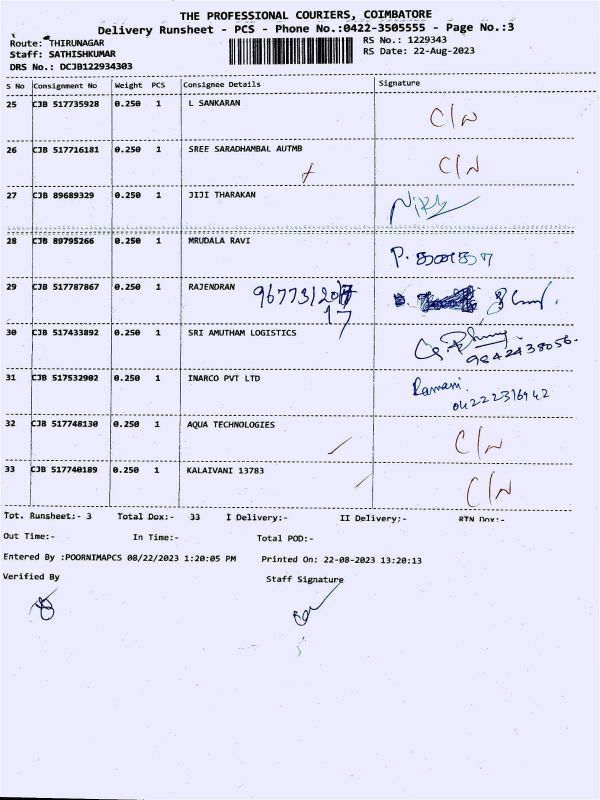 THE PROFESSIONAL COURIERS, COIMBATORE
Delivery Runsheet - PCS - Phone No.:0422-3505555 - Page No.:3
Route: THIRUNAGAR
RS No.: 1229343
Staff: SATHISHKUMAR
RS Date: 22-Aug-2023
DRS No.: DCJB122934303
S No Consignment No Weight PCS Consignee Details Signature
25 CJB 517735928 0.250 1 L SANKARAN C/N
26 CJB 517716181 0.250 1 SREE SARADHAMBAL AUTMB C/N
27 CJB 89689329 0.250 1 JIJI THARAKAN
28 CJB 89795266 0.250 1 MRUDALA RAVI P.
29 CJB 517787867 0.250 1 RAJENDRAN
17
30 CJB 517433892 0.250 1 SRI AMUTHAM LOGISTICS
9842438056.
31 CJB 517532902 0.250 1 INARCO PVT LTD Ramani
04222316942
32 CJB 517748130 0.250 1 AQUA TECHNOLOGIES C/N
33 CJB 517740189 0.250 1 KALAIVANI 13783 C/N
Tot. Runsheet:- 3 Total Dox:- 33 I Delivery:- II Delivery:- RTN Dox:-
Out Time:- In Time:- Total POD:-
Entered By :POORNIMAPCS 08/22/2023 1:20:05 PM Printed On: 22-08-2023 13:20:13
Verified By Staff Signature